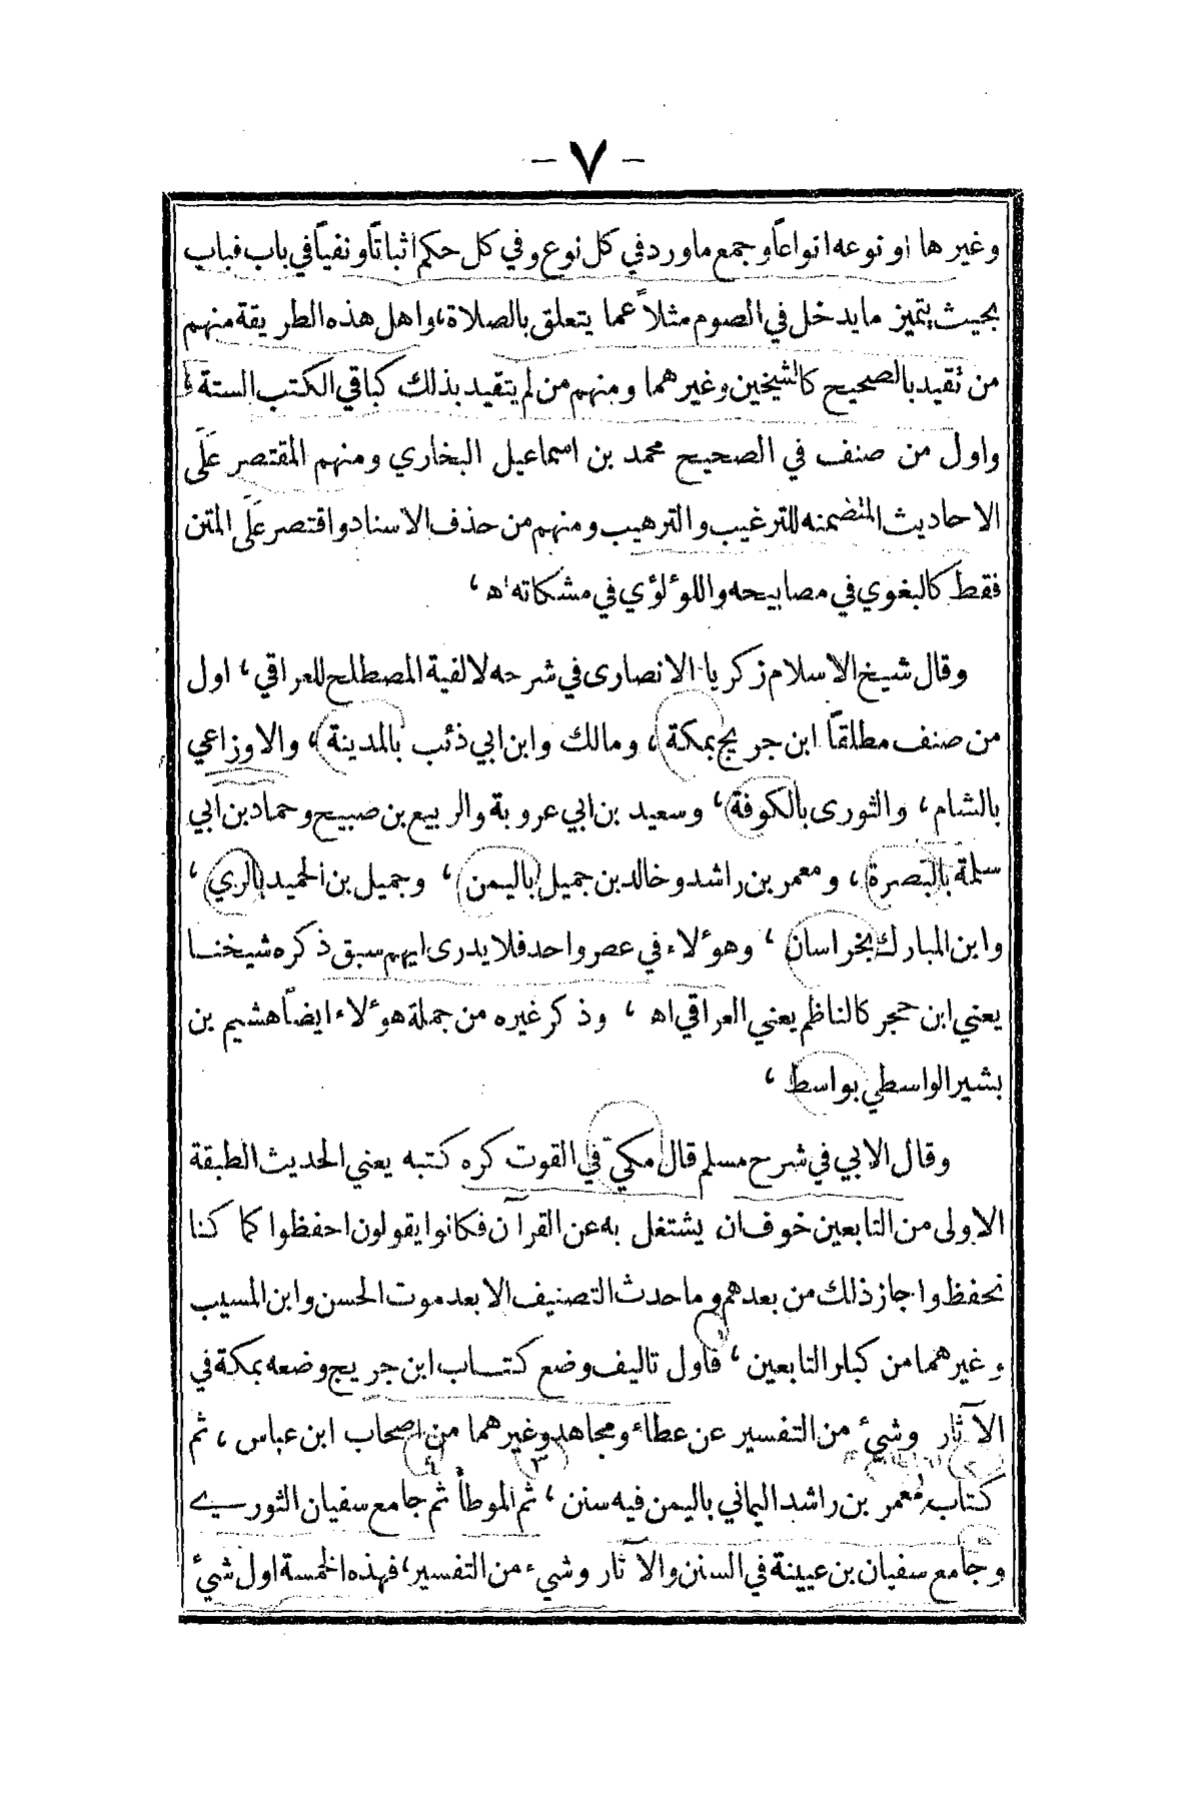 - ٧ -
وغيرها او نوعه انواعاً وجمع ما ورد في كل نوع وفي كل حكم اثباتاً ونفياً في باب فباب
بحيث يتميز ما يدخل في الصوم مثلاً عما يتعلق بالصلاة، واهل هذه الطريقة منهم
من تقيد بالصحيح كالشيخين وغيرهما ومنهم من لم يتقيد بذلك كباقي الكتب الستة،
واول من صنف في الصحيح محمد بن اسماعيل البخاري ومنهم المقتصر على
الاحاديث المتضمنه للترغيب والترهيب ومنهم من حذف الاسناد واقتصر على المتن
فقط كالبغوي في مصابيحه واللوٴلوٴي في مشكاته اه،
وقال شيخ الاسلام زكريا الانصارى في شرحه لالفية المصطلح للعراقي، اول
من صنف مطلقاً ابن جريج بمكة، ومالك وابن ابي ذئب بالمدينة، والاوزاعي
بالشام، والثورى بالكوفة، وسعيد بن ابي عروبة والربيع بن صبيح وحماد بن ابي
سلمة بالبصرة، ومعمر بن راشد وخالد بن جميل باليمن، وجميل بن الحميد بالري،
وابن المبارك بخراسان، وهوٴلاء في عصر واحد فلا يدرى ايهم سبق ذكره شيخنا
يعني ابن حجر كالناظم يعني العراقي اه، وذكر غيره من جملة هوٴلاء ايضاً هشيم بن
بشير الواسطي بواسط،
وقال الابي في شرح مسلم قال مكيّ في القوت كره كتبه يعني الحديث الطبقة
الاولى من التابعين خوف ان يشتغل به عن القرآن فكانوا يقولون احفظوا كما كنا
نحفظ واجاز ذلك من بعدهم وما حدث التصنيف الا بعد موت الحسن وابن المسيب
وغيرهما من كبار التابعين، فاول تاليف وضع كتاب ابن جريج وضعه بمكة في
الآثار وشيٴ من التفسير عن عطاء ومجاهد وغيرهما من اصحاب ابن عباس، ثم
كتاب معمر بن راشد اليماني باليمن فيه سنن، ثم الموطأ ثم جامع سفيان الثوري
وجامع سفيان بن عيينة في السنن والآثار وشيء من التفسير، فهذه الخمسة اول شيٴ